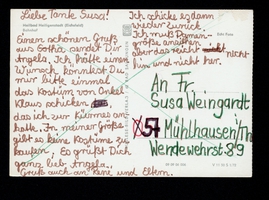 Liebe Tante Susa!
Einen schönen Gruß
aus Gotha sendet Dir
Angela. Ich hätte einen
Wunsch könntest Du
mir bitte einmal
das Kostüm von Onkel
Klaus schicken
das ich zur Kirmes an
hatte. In meiner Größe
gibt es keine Kostüme zu
kaufen. Es grüßt Dich
ganz lieb Angela.
Gruß auch an Rene und Eltern.
Ich schicke es dann
wieder zurück.
Ich muß Damen-
größe anziehen
aber das reicht nicht
hin und nicht her.
An Fr.
Susa Weingardt
57 Mühlhausen/Th
Wendewehrst. 89